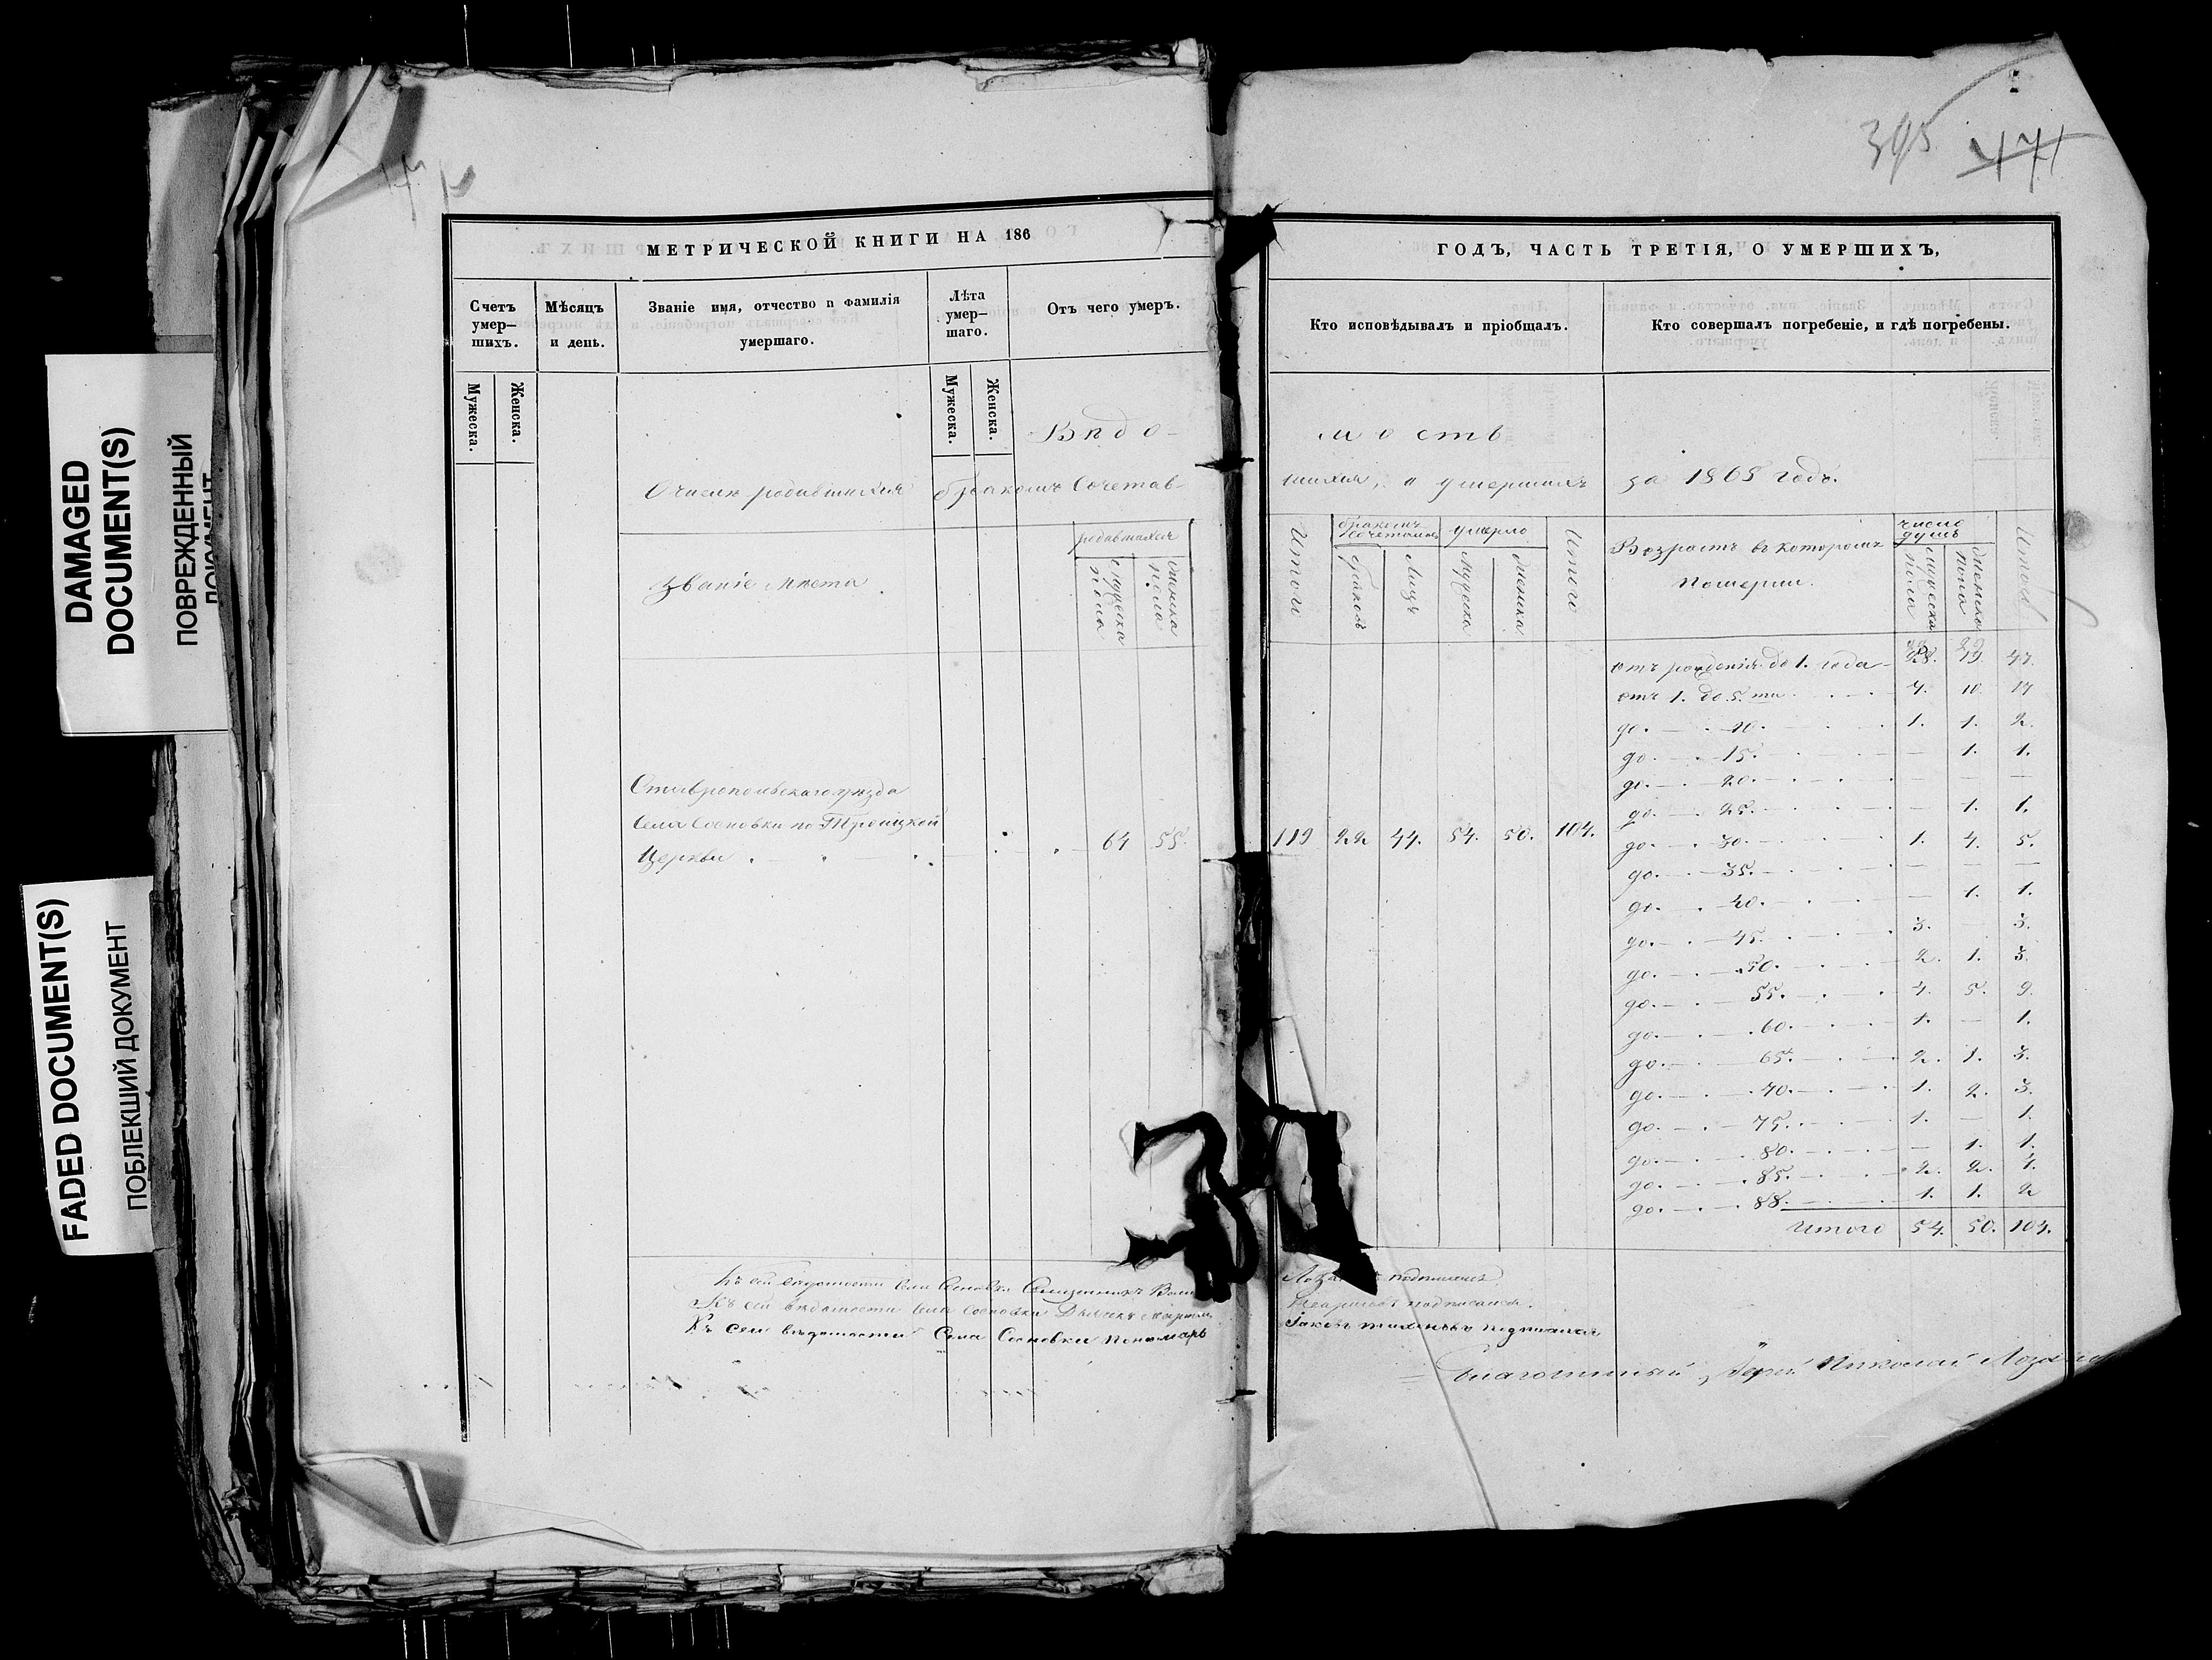 DAMAGED
DOCUMENT(S)
ПОВРЕЖДЕННЫЙ
ДОКУМЕНТ
FADED DOCUMENT(S)
ПОБЛЕКШИЙ ДОКУМЕНТ
395 471
МЕТРИЧЕСКОЙ КНИГИ НА 186
ГОДЪ, ЧАСТЬ ТРЕТІЯ, О УМЕРШИХЪ,
Счетъ умер-
шихъ.
Мѣсяцъ
и день.
Званіе имя, отчество и фамилія
умершаго.
Лѣта
умер-
шаго.
Отъ чего умеръ.
Кто исповѣдывалъ и пріобщалъ.
Кто совершалъ погребеніе, и гдѣ погребены.
Мужеска.
Женска.
Мужеска.
Женска.
Вѣдо-
мость
О числѣ родившихся бракомъ сочетав-
шихся, и умершихъ за 1868 годъ.
Званіе мѣста
родившихся
мужеска пола
женска пола
Итого
бракомъ сочетались
браковъ
Лицъ
умерло
мужеска
женска
Итого
Возрастъ въ которомъ
померли.
число душъ
мужеска пола
женска пола
Итого
Ставропольскаго уѣзда
села Сосновки по Троицкой
Церкви 64 55. 119 22 44. 54. 50. 104.
отъ рожденія до 1. года 28. 19. 47.
отъ 1. до 5. ти 7. 10. 17
до 10. 1. 1. 2.
до 15. — 1. 1.
до 20. — — —
до 25. — 1. 1.
до 30. 1. 4. 5.
до 35. — — —
до 40. — 1. 1.
до 45. 3. 3.
до 50. 2. 1. 3.
до 55. 4. 5. 9.
до 60. 1. — 1.
до 65. 2. 1. 3.
до 70. 1. 2. 3.
до 75. 1. — 1.
до 80. — 1. 1.
до 85. 2. 2. 4.
до 88. 1. 1. 2
Итого 54. 50. 104.
Къ сей вѣдомости села Сосновки Священникъ подписался
Къ сей вѣдомости села Сосновки Дьячекъ подписался.
Къ сей вѣдомости Села Сосновки пономарь Іаковъ Тихоновъ подписался
Благочинный, Іерей Николай